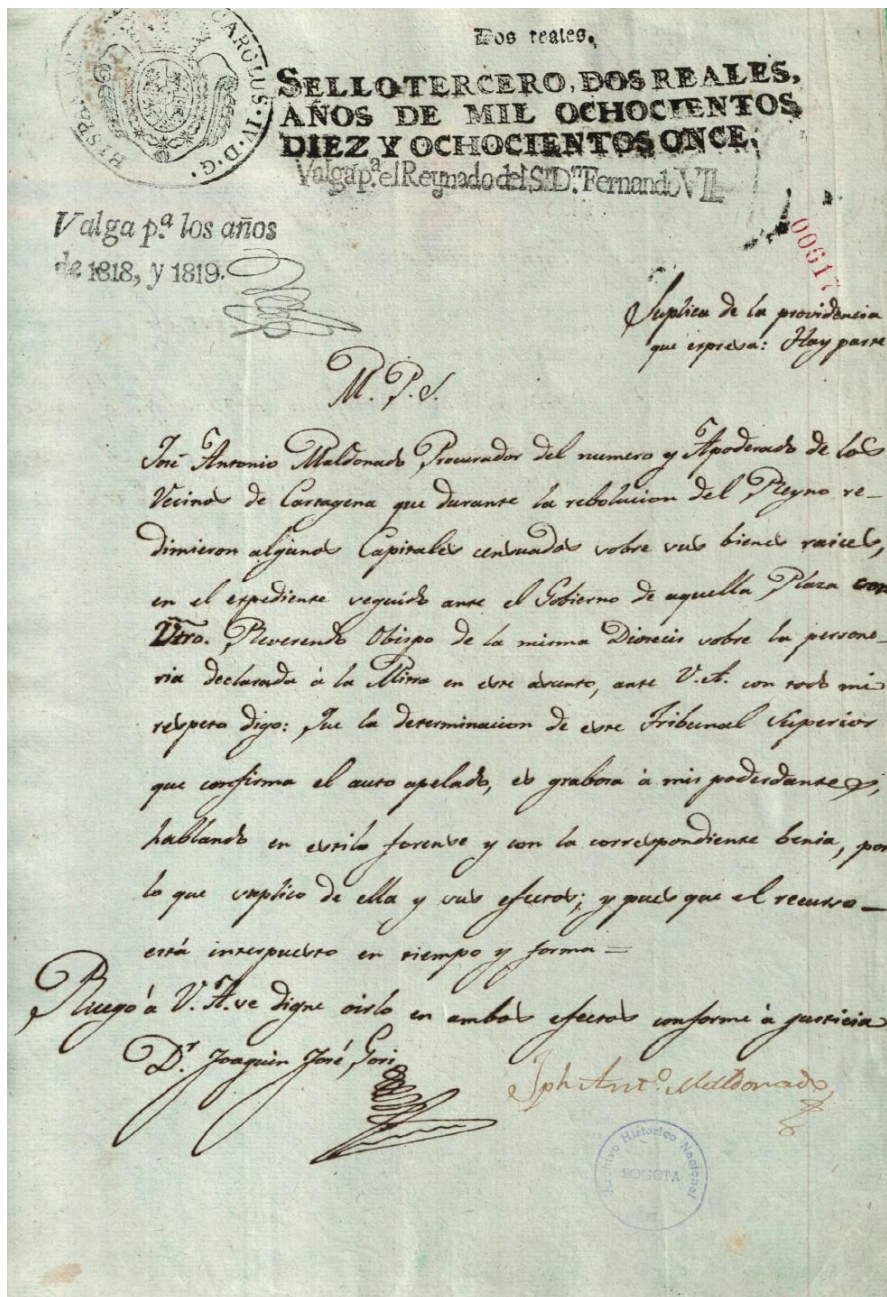 Dos reales.
HISPA CAROLUS·IV·D·G·
SELLO TERCERO, DOS REALES,
AÑOS DE MIL OCHOCIENTOS
DIEZ Y OCHOCIENTOS ONCE.
Valga p.ª el Reynado del S.r D.n Fernando VII
Valga p.ª los años
de 1818, y 1819.
00617
Suplica de la providencia
que expresa: Hay parte
M. P. S.
José Antonio Maldonado Procurador del numero y Apoderado de los
Vecinos de Cartagena que durante la rebolucion del Reyno re-
dimieron algunos Capitales censuados sobre sus bienes raices,
en el expediente seguido ante el Gobierno de aquella Plaza con
Vtro. Reverendo Obispo de la misma Diocecis sobre la persone-
ria declarada á la Mitra en este asunto, ante V.A. con todo mi
respeto digo: Que la determinacion de este Tribunal Superior
que confirma el auto apelado, es grabosa á mis poderdantes,
hablando en estilo forense y con la correspondiente benia, por
lo que suplico de ella y sus efectos; y pues que el recurso —
está interpuesto en tiempo y forma =
Ruego á V. A. se digne oirlo en ambos efectos conforme á justicia
D.r Joaquin José Gori
Jph Ant.o Maldonado
Archivo Historico Nacional
BOGOTA